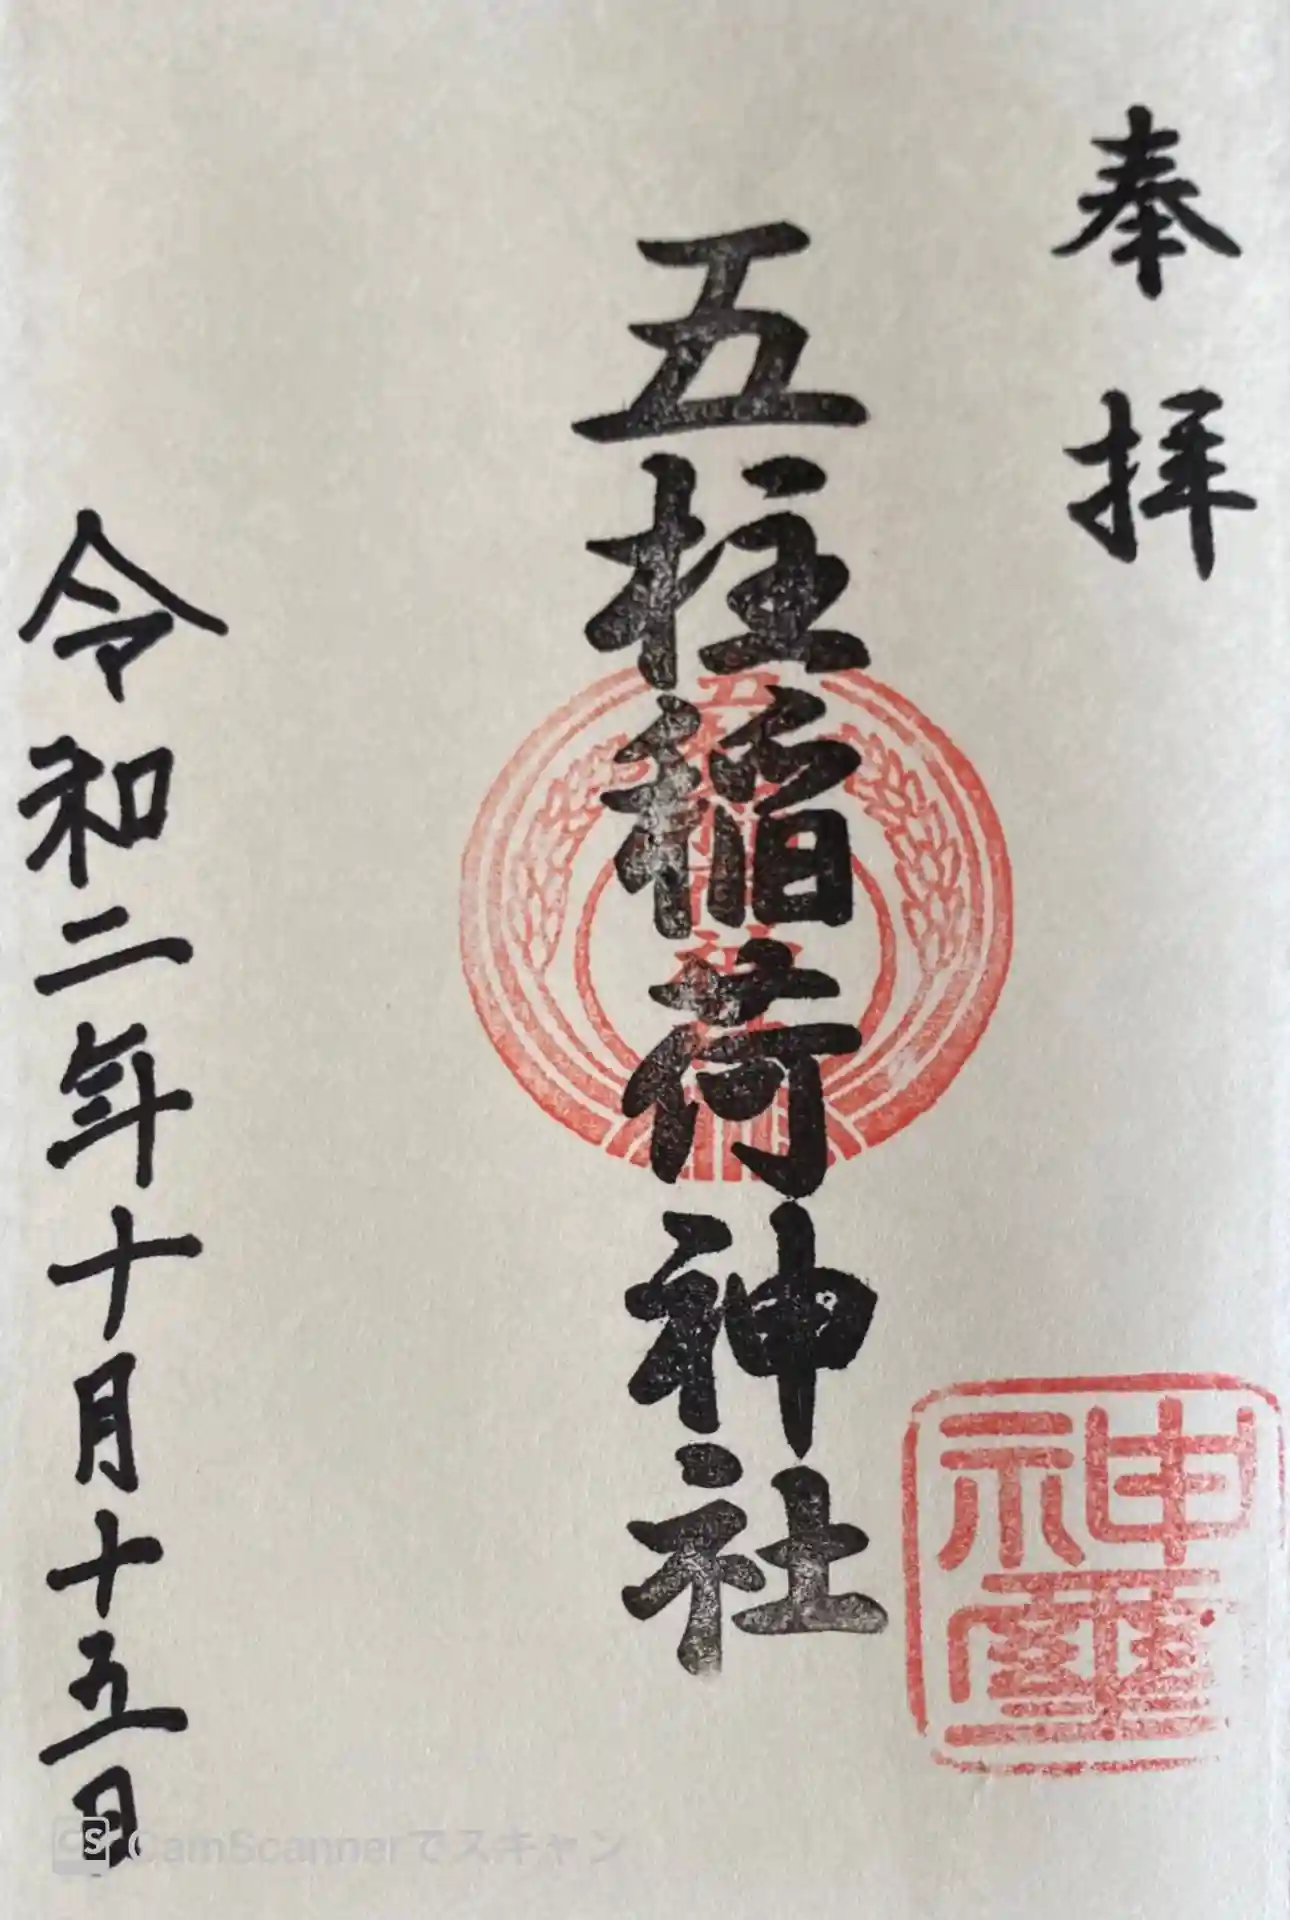 奉拝
五柱稲荷神社
神璽
令和二年十月十五日
CamScannerでスキャン